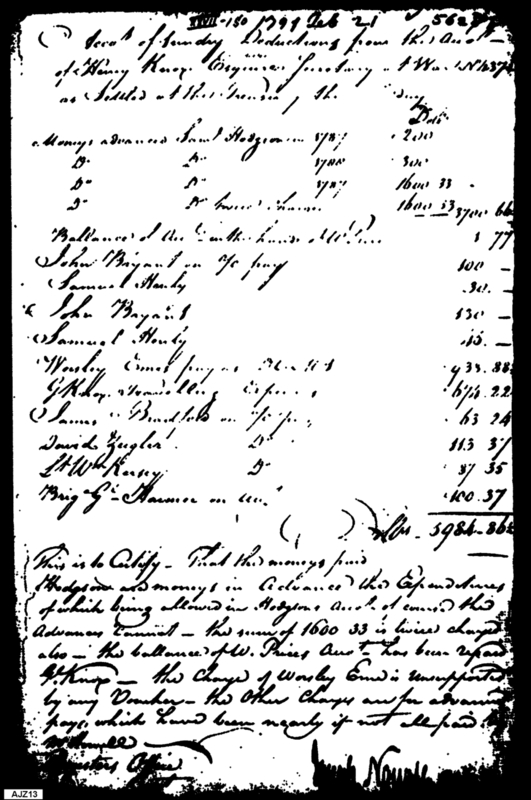 1791 Feb 21
Accot of Sundry Deductions from the Accot
of Henry Knox Esquire Secretary at War No
as Settled at the Treasury the day
Dolls
Moneys advanced Saml Hodgson 1787 200
Do Do 300
Do Do 1787 1600 33
Do Do twice Charged 1600 33 3700 66
Ballance of in the hands of 77
John Bryant on pay 100 —
Samuel Henly 30. —
John Bryant 130 —
Samuel Henly 45 —
Worsley Emes pay as 933. 88
G Knox travelling Expences 674. 22
James Bradford on pay 63 24
David Zeigler Do 113 37
Lt Wm Kersey Do 87 35
Brigr Gl Harmer on 100. 37
This is to Certify — That the moneys paid
Hodgson are moneys in Advance the Expenditures
of which being allowed in Hodgsons Accot of course the
Advances Cannot — the sum of 1600 33 is twice charged
also — the ballance of W. Prices Accot has been repaid
Gl Knox — the Charge of Worsley Emes is Unsupported
by any Voucher — the Other Charges are for advance
pay, which have been nearly if not all paid by
Howell
Office
Joseph
AJZ13